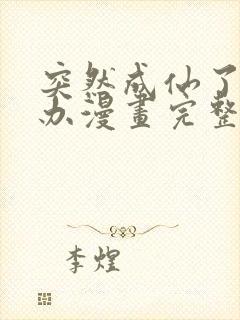 突然成仙了
办漫畫完整
李煌